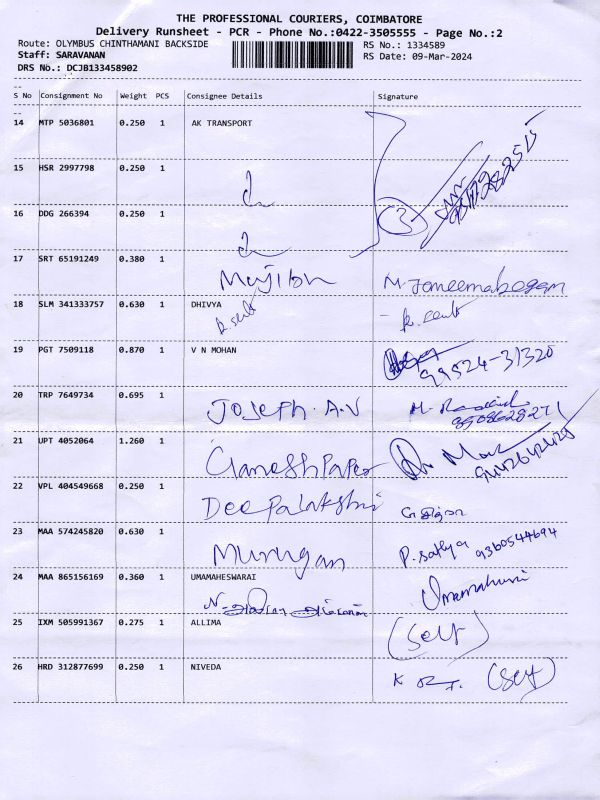 THE PROFESSIONAL COURIERS, COIMBATORE
Delivery Runsheet - PCR - Phone No.:0422-3505555 - Page No.:2
Route: OLYMBUS CHINTHAMANI BACKSIDE RS No.: 1334589
Staff: SARAVANAN RS Date: 09-Mar-2024
DRS No.: DCJB133458902
S No Consignment No Weight PCS Consignee Details Signature
14 MTP 5036801 0.250 1 AK TRANSPORT
15 HSR 2997798 0.250 1
16 DDG 266394 0.250 1
3
17 SRT 65191249 0.380 1
M. Jameemabegam
18 SLM 341333757 0.630 1 DHIVYA
19 PGT 7509118 0.870 1 V N MOHAN
99524-31320
20 TRP 7649734 0.695 1
Joseph. A.V
21 UPT 4052064 1.260 1
Ganesh Paper
22 VPL 404549668 0.250 1
Deepalakshmi
23 MAA 574245820 0.630 1
Murugan P. Sathya 9360544694
24 MAA 865156169 0.360 1 UMAMAHESWARAI
25 IXM 505991367 0.275 1 ALLIMA
(Self)
26 HRD 312877699 0.250 1 NIVEDA
(Self)